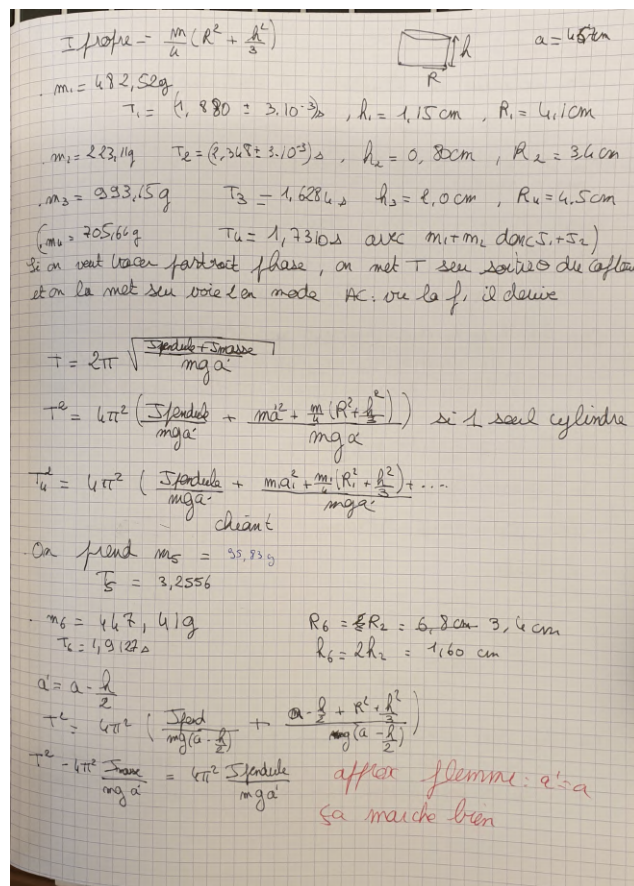 I propre = m/4 (R² + h²/3)
h
R
a = 45cm
. m₁ = 482,52g
T₁ = (1,880 ± 3.10⁻³)s , h₁ = 1,15cm , R₁ = 4,1cm
. m₂ = 223,11g T₂ = (2,348 ± 3.10⁻³)s , h₂ = 0,80cm , R₂ = 3,4 cm
. m₃ = 993,15g T₃ = 1,6284 s h₃ = 2,0cm , R₄ = 4.5cm
(. m₄ = 705,64g T₄ = 1,7310s avec m₁+m₂ donc J₁+J₂)
Si on veut tracer portrait phase, on met T sur sortie θ du
et on la met sur voie 2 en mode AC. vu la f, il derive
T = 2π √((Jpendule + Jmasse)/(mga'))
T² = 4π² (Jpendule/(mga') + (ma'² + m/4 (R² + h²/3))/(mga')) si 1 seul cylindre
T₄² = 4π² (Jpendule/(mga') + (m₁a₁'² + m₁/4 (R₁² + h²/3) + ....)/(mga')
chiant
On prend m₅ = 95,83g
T₅ = 3,2556
. m₆ = 447,41g R₆ = R₂ = 6,8cm 3,4 cm
T₆ = 1,9127s h₆ = 2h₂ = 1,60 cm
a' = a - h/2
T² = 4π² (Jpend/(mg(a - h/2)) + (a - h/2 + R² + h²/3)/(mg(a - h/2)))
T² - 4π² Jmasse/(mga') = 4π² Jpendule/(mga')
approx flemme : a' = a
ça marche bien